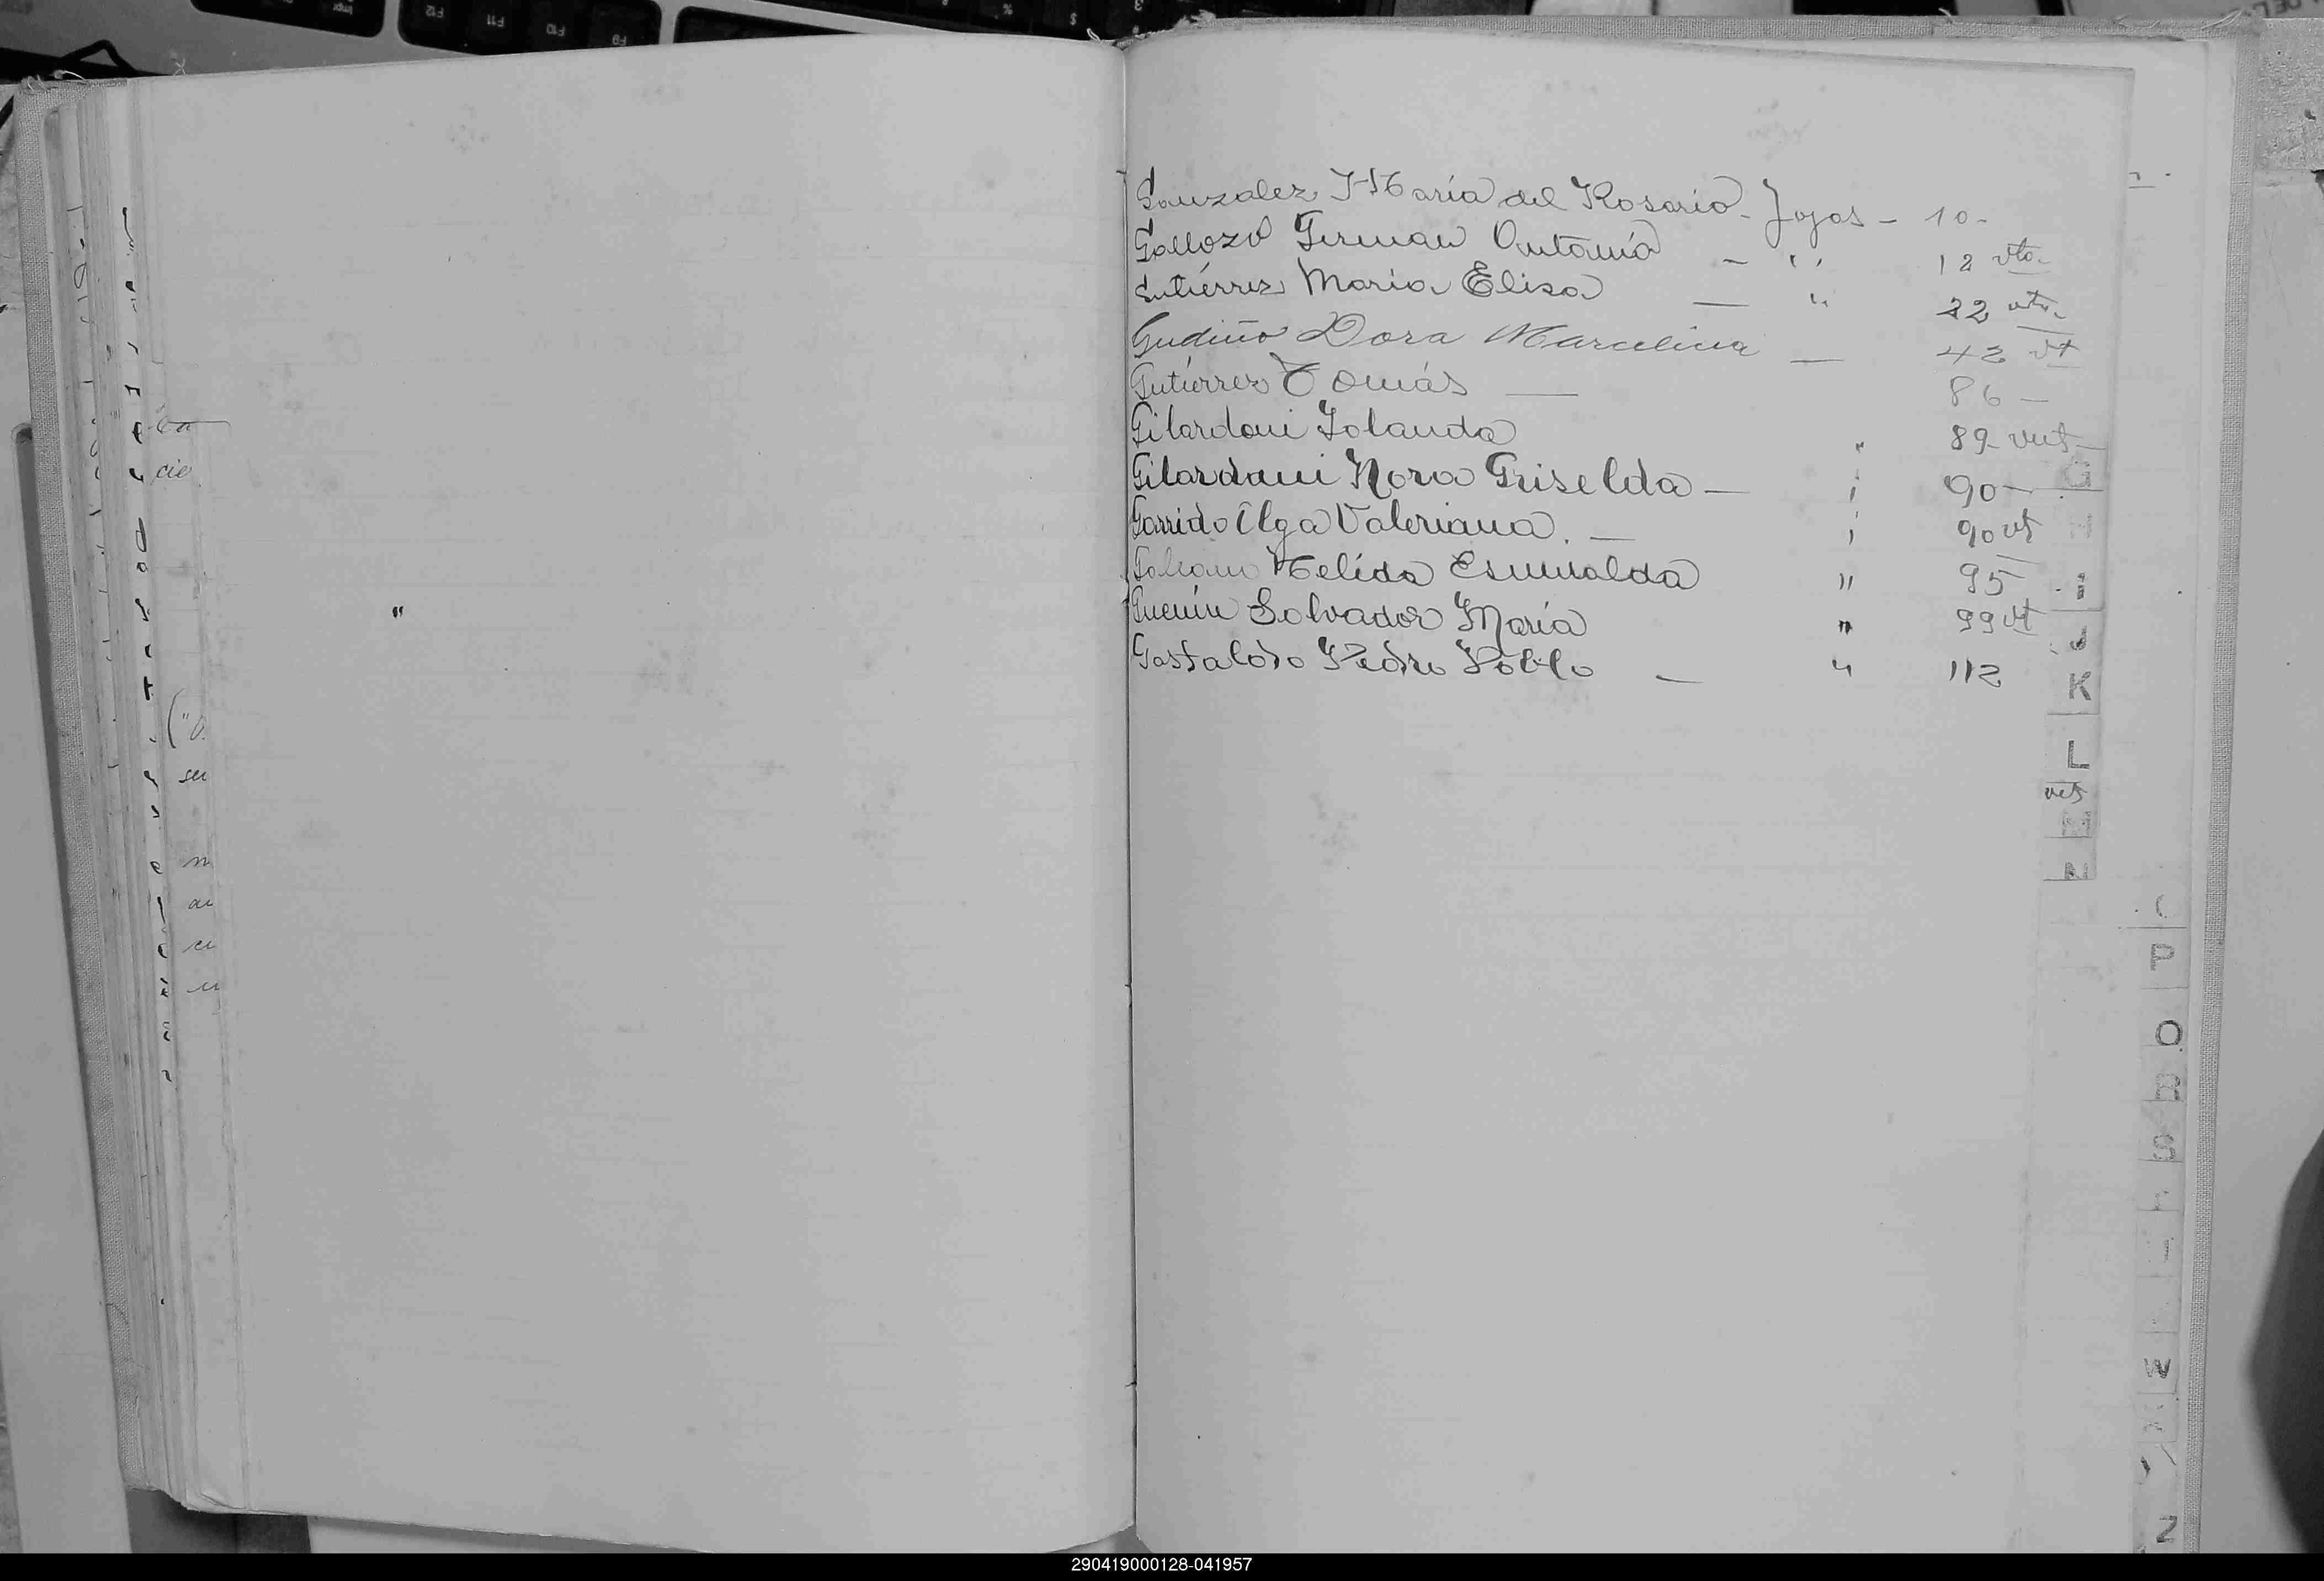 Gonzalez María del Rosario - Fojas - 10 -
Gallozo German Antonio - " 12 vto.
Gutiérrez Maria Elisa — " 22 vto.
Gudiño Dora Marcelina — 42 vt
Gutiérrez Tomás — 86 —
Gilardoni Iolanda " 89 vut
Gilardoni Nora Griselda — " 90 —
Garrido Olga Valeriana. — " 90 vt
Nelida Esmeralda " 95
Guenin Salvador María " 99 vt
Gastaldo Pedro Pablo — " 112
G
I
J
K
L
N
P
Q
R
S
W
Z
290419000128-041957